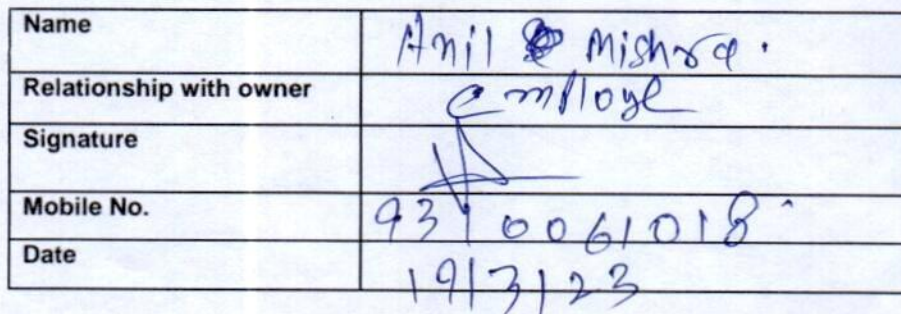 Name Anil Mishra.
Relationship with owner employe
Signature
Mobile No. 9310061018
Date 19/3/23